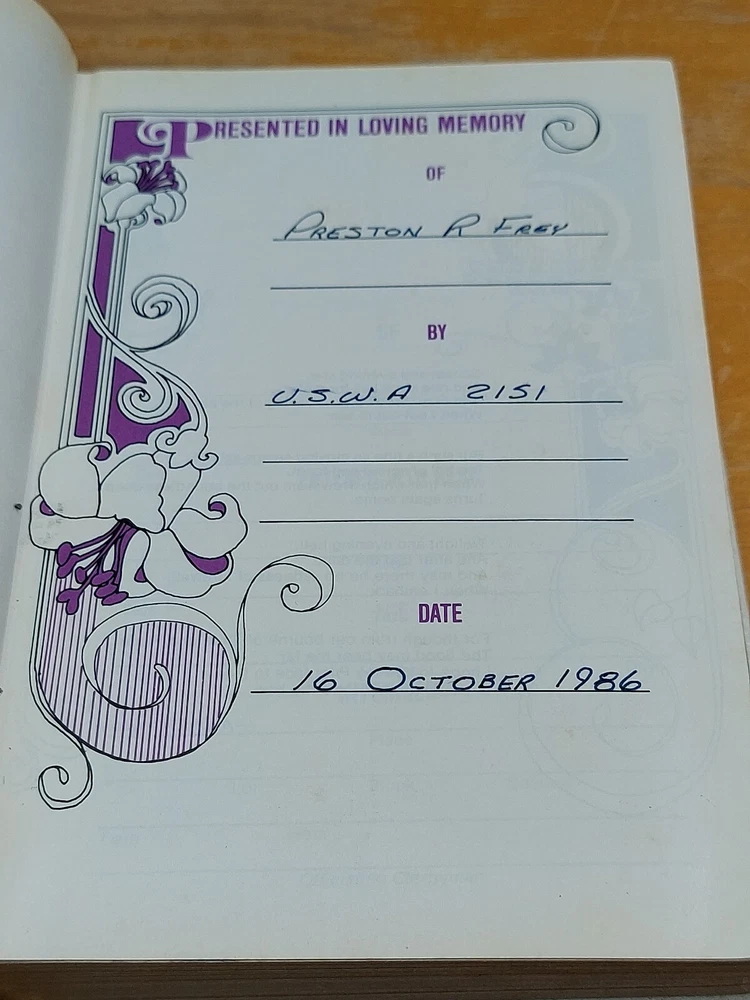 PRESENTED IN LOVING MEMORY
OF
PRESTON R FREY
BY
U.S.W.A 2151
DATE
16 OCTOBER 1986